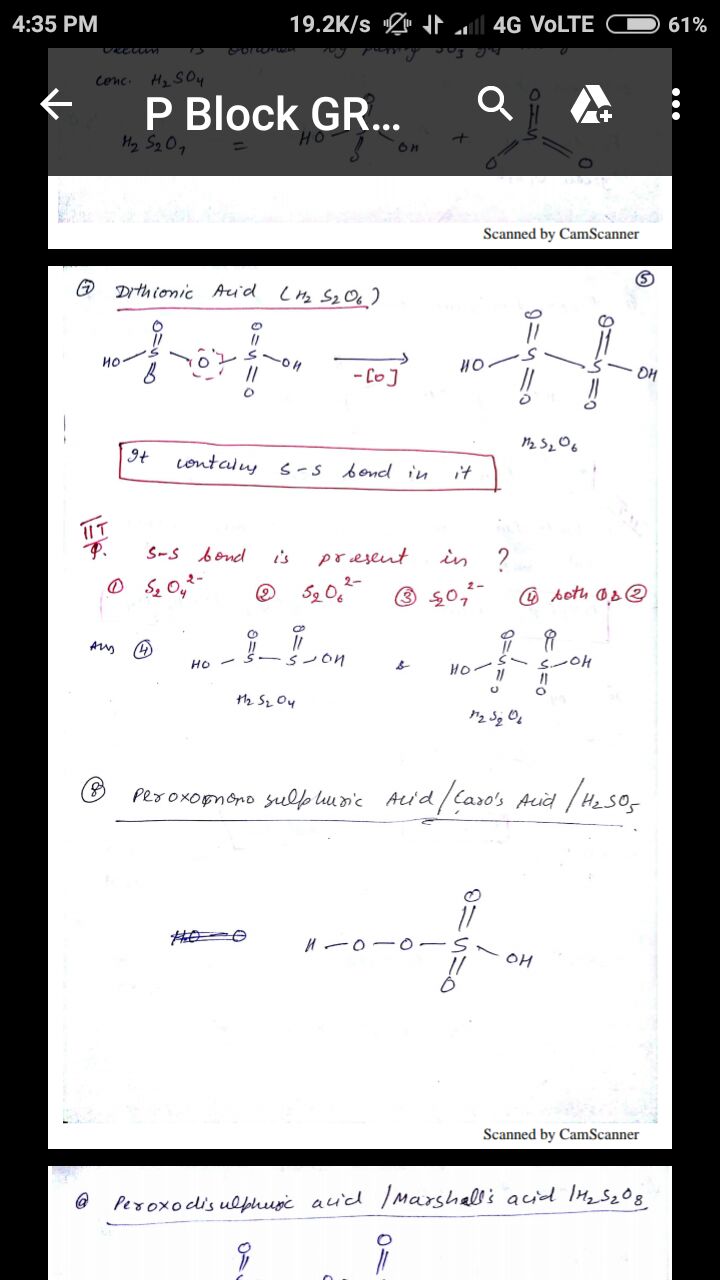 4:35 PM 19.2K/s 4G VoLTE 61%
conc. H2SO4
P Block GR...
H2S2O7 = HO S OH + O S O O
Scanned by CamScanner
⑦ Dithionic Acid (H2S2O6) ⑤
O O O O
HO S O S OH -[O] HO S S OH
O O O O
H2S2O6
It contains S-S bond in it
IIT
Q. S-S bond is present in ?
① S2O4 2- ② S2O6 2- ③ S2O7 2- ④ both ① & ②
Ans ④ HO - S - S - OH & HO - S - S - OH
H2S2O4 H2S2O6
⑧ Peroxomono sulphuric Acid / Caro's Acid / H2SO5
O
H - O - O - S - OH
O
Scanned by CamScanner
⑨ Peroxodisulphuric acid / Marshall's acid / H2S2O8
O O